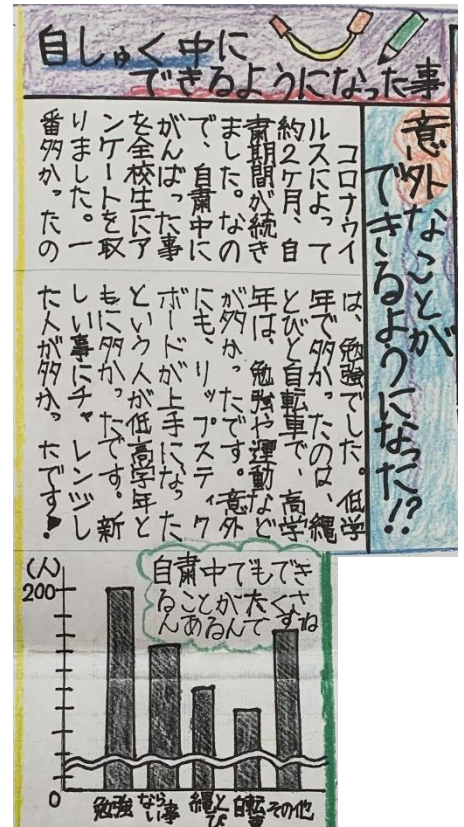 自しゅく中に
できるようになった事
意外なことが
できるようになった!?
コロナウイ
ルスによって
約2ヶ月、自
粛期間が続き
ました。なの
で、自粛中に
がんばった事
を全校生にア
ンケートを取
りました。一
番多かったの
は、勉強でした。低学
年で多かったのは、縄
とびと自転車で、高学
年は、勉強や運動など
が多かったです。意外
にも、リップスティック
ボードが上手になった
という人が低高学年と
もに多かったです。新
しい事にチャレンジし
た人が多かったです!
自粛中でもでき
ることがたくさ
んあるんですね
(人)
200
0
勉強
ならい事
縄とび
自転車
その他